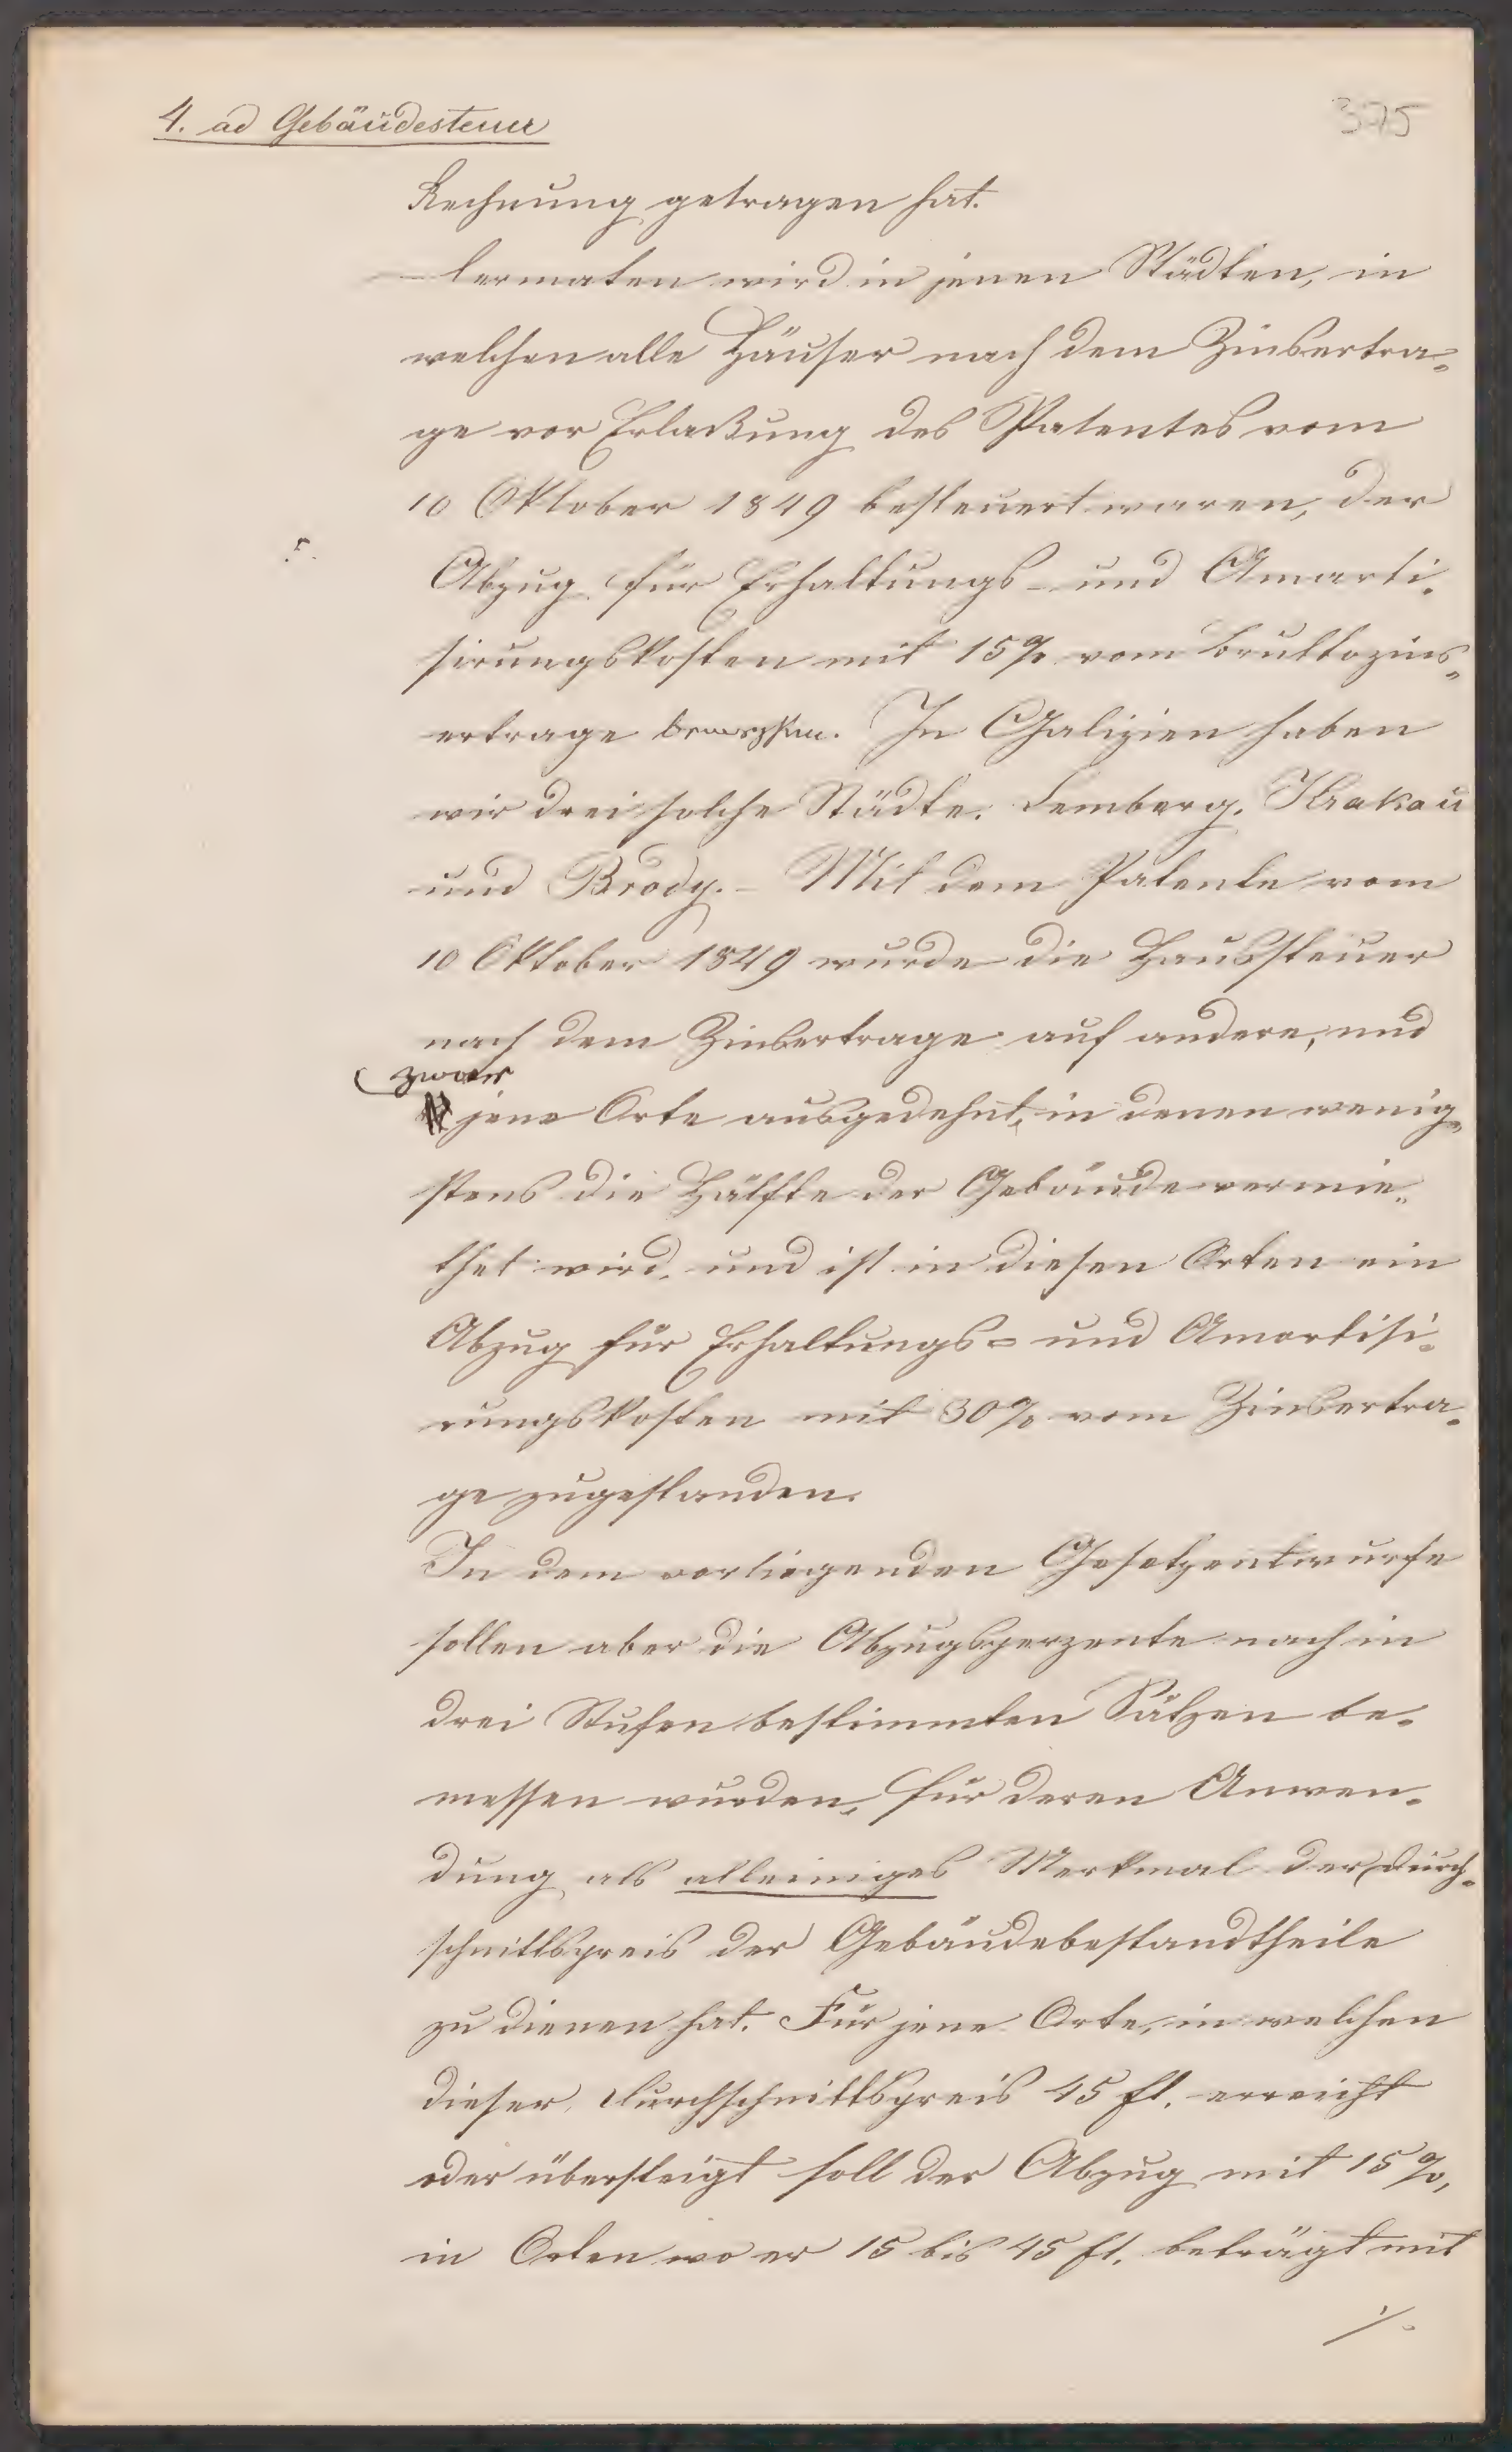 4. ad Gebäudesteuer
375
Rechnung getragen hat.
wird in jenen Städten, in
welchen alle Häuser nach dem Zinsertra=
ge vor Erlaßung des Patentes vom
10 Oktober 1849 besteuert waren, der
Abzug für Erhaltungs- und Amorti=
sirungskosten mit 15% vom Bruttozins=
ertrage In Galizien haben
wir drei solche Städte: Lemberg, Krakau
und Brody. - Mit dem Patente vom
10 Oktober 1849 wurde die Haussteuer
nach dem Zinsertrage auf andere, und
zwar
jene Orte ausgedehnt, in denen wenig=
stens die Hälfte der Gebäude vermie=
thet wird, und ist in diesen Orten ein
Abzug für Erhaltungs= und Amortisi=
rungskosten mit 30% vom Zinsertra=
ge zugestanden.
In dem vorliegenden Gesetzentwurfe
sollen aber die Abzugsperzente nach in
drei Stufen bestimmten Sätzen be=
messen wurden, für deren Anwen=
dung als alleiniges Merkmal der Durch=
schnittspreis der Gebäudebestandtheile
zu dienen hat. Für jene Orte, in welchen
dieser Durchschnittspreis 45 fl. erreicht
oder übersteigt soll der Abzug mit 15%,
in Orten wo er 15 bis 45 fl. beträgt mit
./.